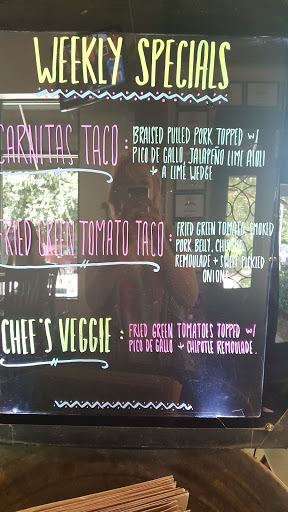 WEEKLY SPECIALS
CARNITAS TACO : BRAISED PULLED PORK TOPPED W/
PICO DE GALLO, JALAPEÑO LIME AIOLI
+ A LIME WEDGE
FRIED GREEN TOMATO TACO : FRIED GREEN TOMATO, SMOKED
PORK BELLY, CHIPOTLE
REMOULADE + SWEET PICKLED
ONIONS
CHEF'S VEGGIE : FRIED GREEN TOMATOES TOPPED W/
PICO DE GALLO + CHIPOTLE REMOULADE.